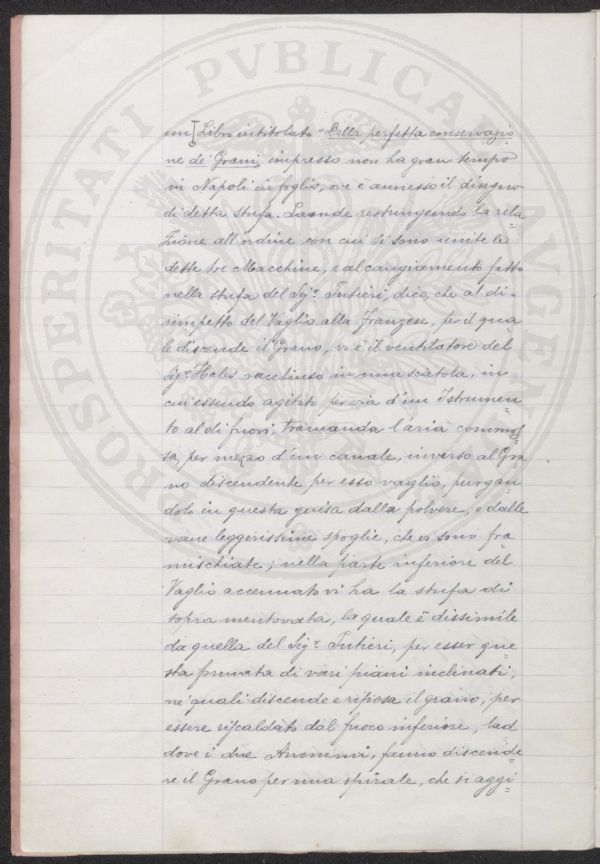 PROSPERITATI PVBLICAE AVGENDAE
un Libro intitolato - Della perfetta conservazio=
ne de' Grani, impresso non ha gran tempo
in Napoli in foglio, ove è annesso il disegno
di detta stufa. Laonde restringendo la rela=
zione all'ordine con cui si sono unite le
dette tre Macchine, e al cangiamento fatto
nella stufa del Sig.r Intieri, dico, che al di=
rimpetto del Vaglio alla Franzese, per il qua=
le discende il Grano, vi è il ventilatore del
Sig.r Hales racchiuso in una scatola, in
cui essendo agitato per via d'un Istrumen=
to al di fuori, tramanda l'aria commos=
sa, per mezzo d'un canale, inverso al Gra=
no discendente per esso vaglio, purgan=
dolo in questa guisa dalla polvere, e dalle
vane leggerissime spoglie, che vi sono fra
mischiate; nella parte inferiore del
Vaglio accennato vi ha la stufa di
sopra mentovata, la quale è dissimile
da quella del Sig.r Intieri, per esser que=
sta formata di vari piani inclinati,
ne' quali discende e riposa il grano, per
essere riscaldato dal fuoco inferiore, lad
dove i due Anonimi, fanno discende=
re il Grano per una spirale, che si aggi=